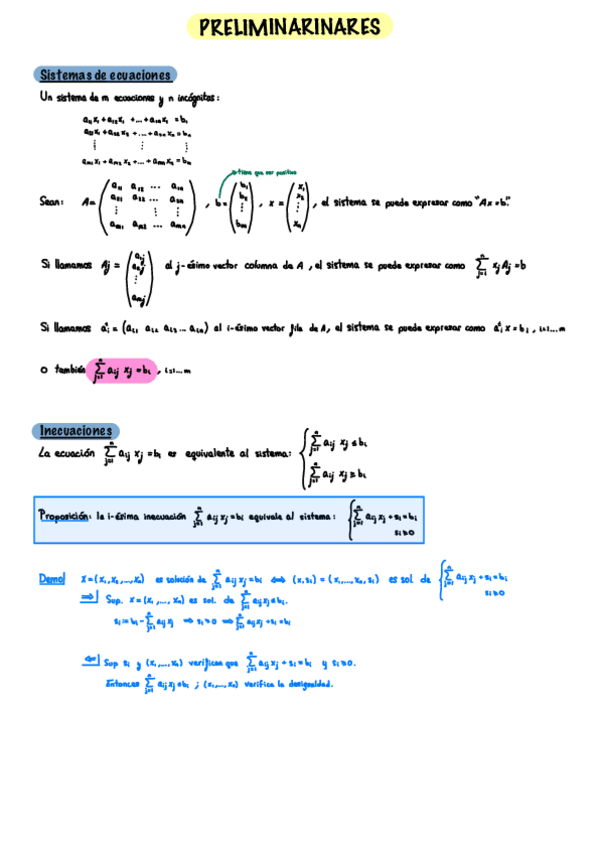 PRELIMINARINARES
Sistemas de ecuaciones
Un sistema de m ecuaciones y n incógnitas:
a₁₁x₁ + a₁₂x₁ + ... + a₁ₙx₁ = b₁
a₂₁x₁ + a₂₂x₂ + ... + a₂ₙxₙ = bₙ
⋮ ⋮ ⋮
aₘ₁x₁ + aₘ₂x₂ + ... + aₘₙx₂ = bₙ
tiene que ser positivo
Sean: A = (a₁₁ a₁₂ ... a₁ₙ; a₂₁ a₂₂ ... a₂ₙ; ⋮ ⋮ ⋮; aₘ₁ aₘ₂ ... aₘₙ), b = (b₁ b₂ ⋮ bₘ), x = (x₁ x₂ ⋮ xₙ), el sistema se puede expresar como "Ax = b."
Si llamamos Aj = (a₁j a₂j ⋮ aₘj) al j-ésimo vector columna de A, el sistema se puede expresar como ∑ⁿⱼ₌₁ xj Aj = b
Si llamamos aⁱ = (aᵢ₁ aᵢ₂ aᵢ₃ ... aᵢₙ) al i-ésimo vector fila de A, el sistema se puede expresar como aⁱ x = bᵢ, i=1...m
o también ∑ⁿⱼ₌₁ aij xj = bi, i=1...m
Inecuaciones
La ecuación ∑ⁿⱼ₌₁ aij xj = bi es equivalente al sistema: { ∑ⁿⱼ₌₁ aij xj ≤ bi
∑ⁿⱼ₌₁ aij xj ≥ bi
Proposición: la i-ésima inecuación ∑ⁿⱼ₌₁ aij xj = bi equivale al sistema: { ∑ⁿⱼ₌₁ aij xj + si = bi
si ≥ 0
Demo| X = (x₁, x₂, ..., xₙ) es solución de ∑ⁿⱼ₌₁ aij xj = bi ⟺ (x, si) = (x₁, ..., xₙ, si) es sol. de { ∑ⁿⱼ₌₁ aij xj + si = bi
si ≥ 0
⇒| Sup. X = (x₁, ..., xₙ) es sol. de ∑ⁿⱼ₌₁ aij xj ≤ bi.
si := bi - ∑ⁿⱼ₌₁ aij xj ⇒ si ≥ 0 ⇒ ∑ⁿⱼ₌₁ aij xj + si = bi
⇐| Sup si y (x₁, ..., xₙ) verifican que ∑ⁿⱼ₌₁ aij xj + si = bi y si ≥ 0.
Entonces ∑ⁿⱼ₌₁ aij xj ≤ bi ; (x₁, ..., xₙ) verifica la desigualdad.